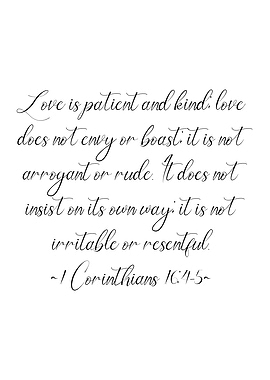 Love is patient and kind; love
does not envy or boast; it is not
arrogant or rude. It does not
insist on its own way; it is not
irritable or resentful.
~1 Corinthians 16:4-5~